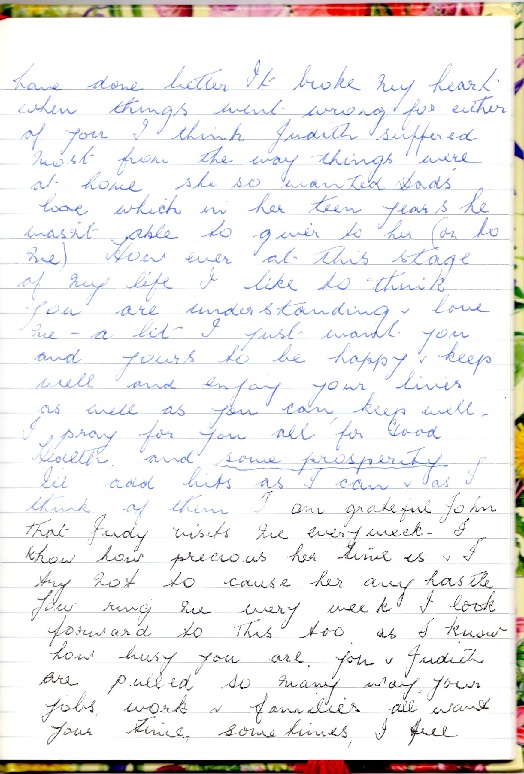 have done better It broke my heart
when things went wrong for either
of you I think Judith suffered
most from the way things were
at home she so wanted Dad's
love which in her teen years he
wasn't able to give to her (or to
me) How ever at this stage
of my life I like to think
you are understanding & love
me - a bit I just want you
and yours to be happy & keep
well and enjoy your lives
as well as you can, keep well.
I pray for you all for Good
Health and some prosperity
Ill add bits as I can & as I
think of them I am grateful John
that Judy visits me every week - I
know how precious her time is & I
try not to cause her any hastle
You ring me every week I look
forward to this too as I know
how busy you are. you & Judith
are pulled so many way, your
jobs, work & families all want
your time, sometimes, I feel